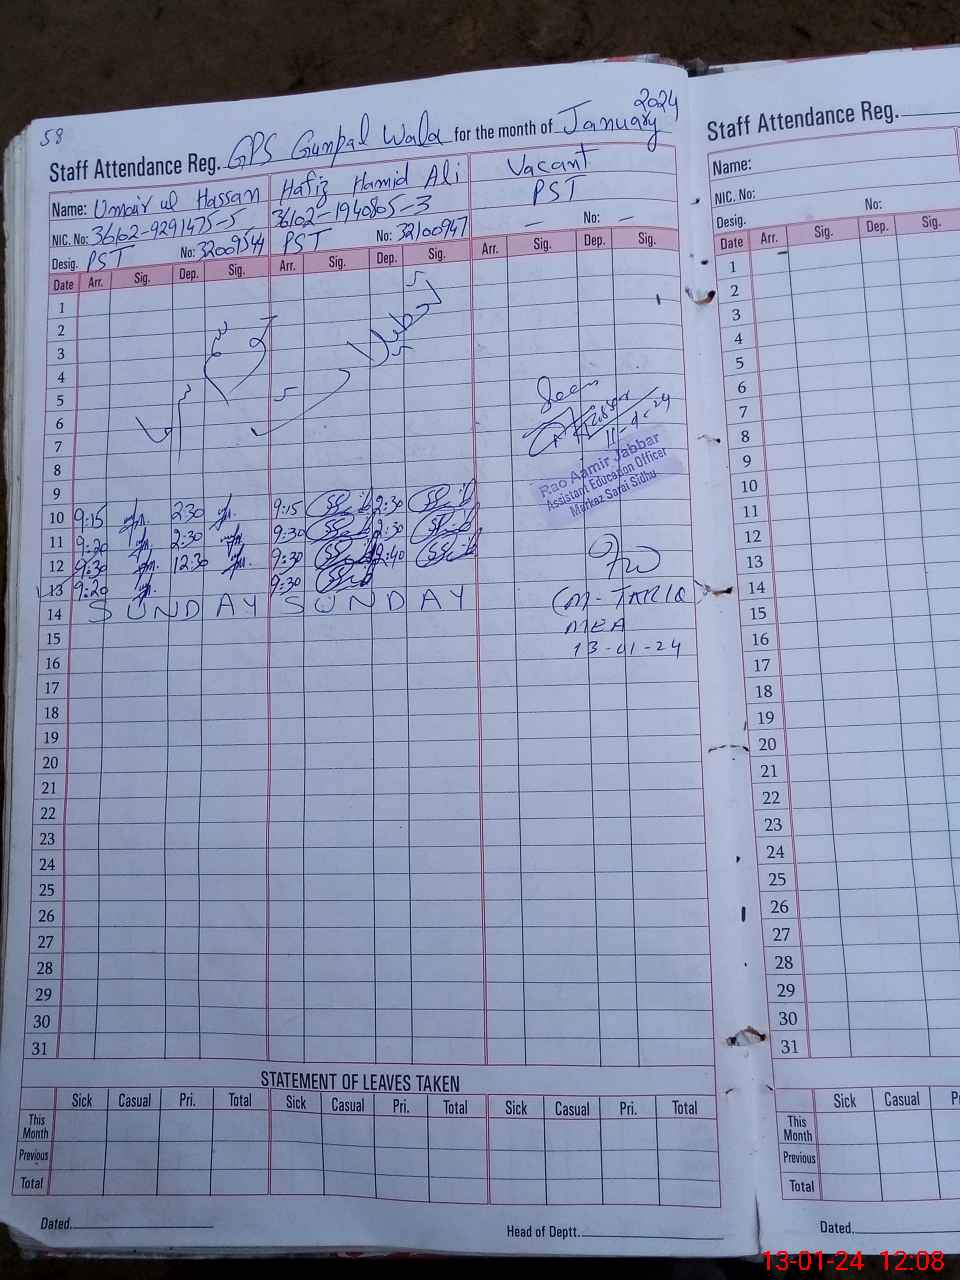 58
Staff Attendance Reg. GPS Gumpal Wala for the month of January 2024
Name: Umair ul Hassan Hafiz Hamid Ali Vacant
NIC. No: 36102-9291475-5 36102-1940805-3 PST
Desig. PST No: 32009544 PST No: 32100947 — No: —
Date Arr. Sig. Dep. Sig. Arr. Sig. Dep. Sig. Arr. Sig. Dep. Sig.
1
2
3
4
5
6
7
8
9
10 9:15 2:30 9:15 2:30
11 9:20 2:30 9:30 2:30
12 9:30 12:30 9:30 12:40
13 9:20 9:30
14 SUNDAY SUNDAY
15
16
17
18
19
20
21
22
23
24
25
26
27
28
29
30
31
Seen
11-1-24
Rao Aamir Jabbar
Assistant Education Officer
Markaz Sarai Sidhu
(M-TARIQ
MEA
13-01-24
STATEMENT OF LEAVES TAKEN
Sick Casual Pri. Total Sick Casual Pri. Total Sick Casual Pri. Total
This Month
Previous
Total
Dated. Head of Deptt.
Staff Attendance Reg.
Name:
NIC. No:
Desig. No:
Date Arr. Sig. Dep. Sig.
1
2
3
4
5
6
7
8
9
10
11
12
13
14
15
16
17
18
19
20
21
22
23
24
25
26
27
28
29
30
31
Sick Casual
This Month
Previous
Total
Dated.
13-01-24 12:08